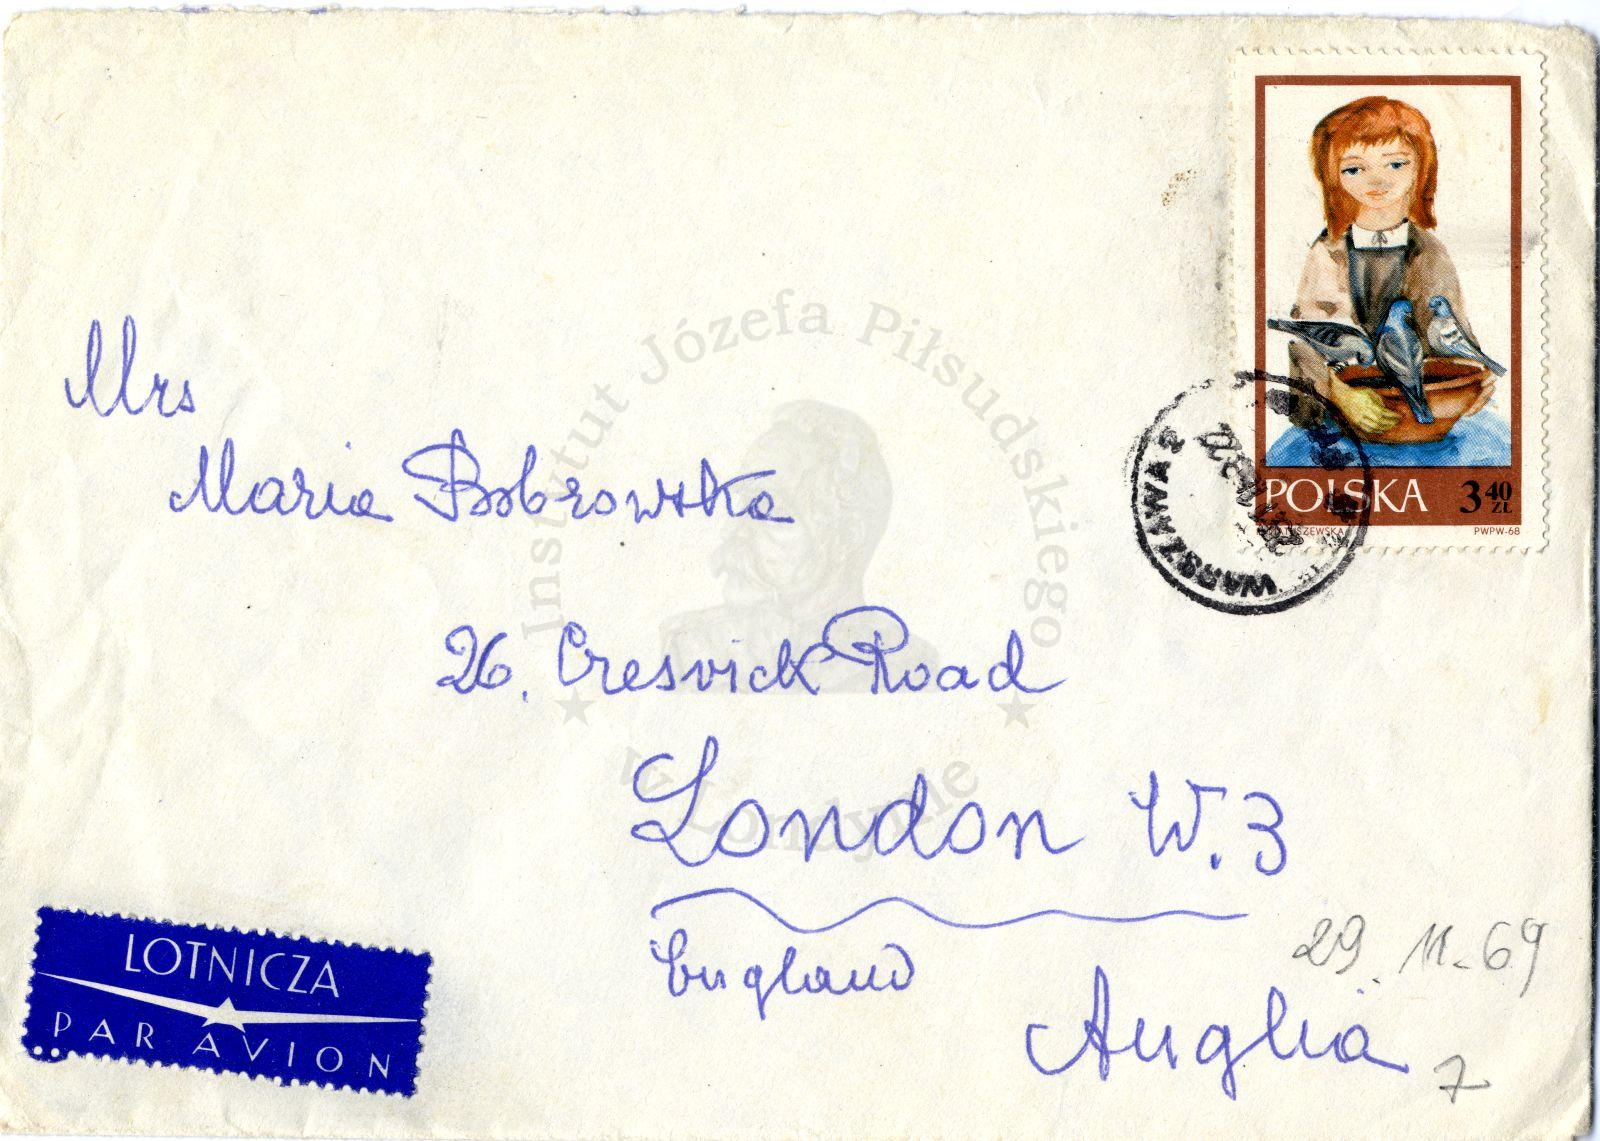 POLSKA 3 40 ZŁ
PWPW-68
WARSZAWA 2
Instytut Józefa Piłsudskiego
w Londynie
Mrs
Maria Bobrowska
26. Cresvick Road
London W.3
England
Anglia
29.11.69
7
LOTNICZA
PAR AVION